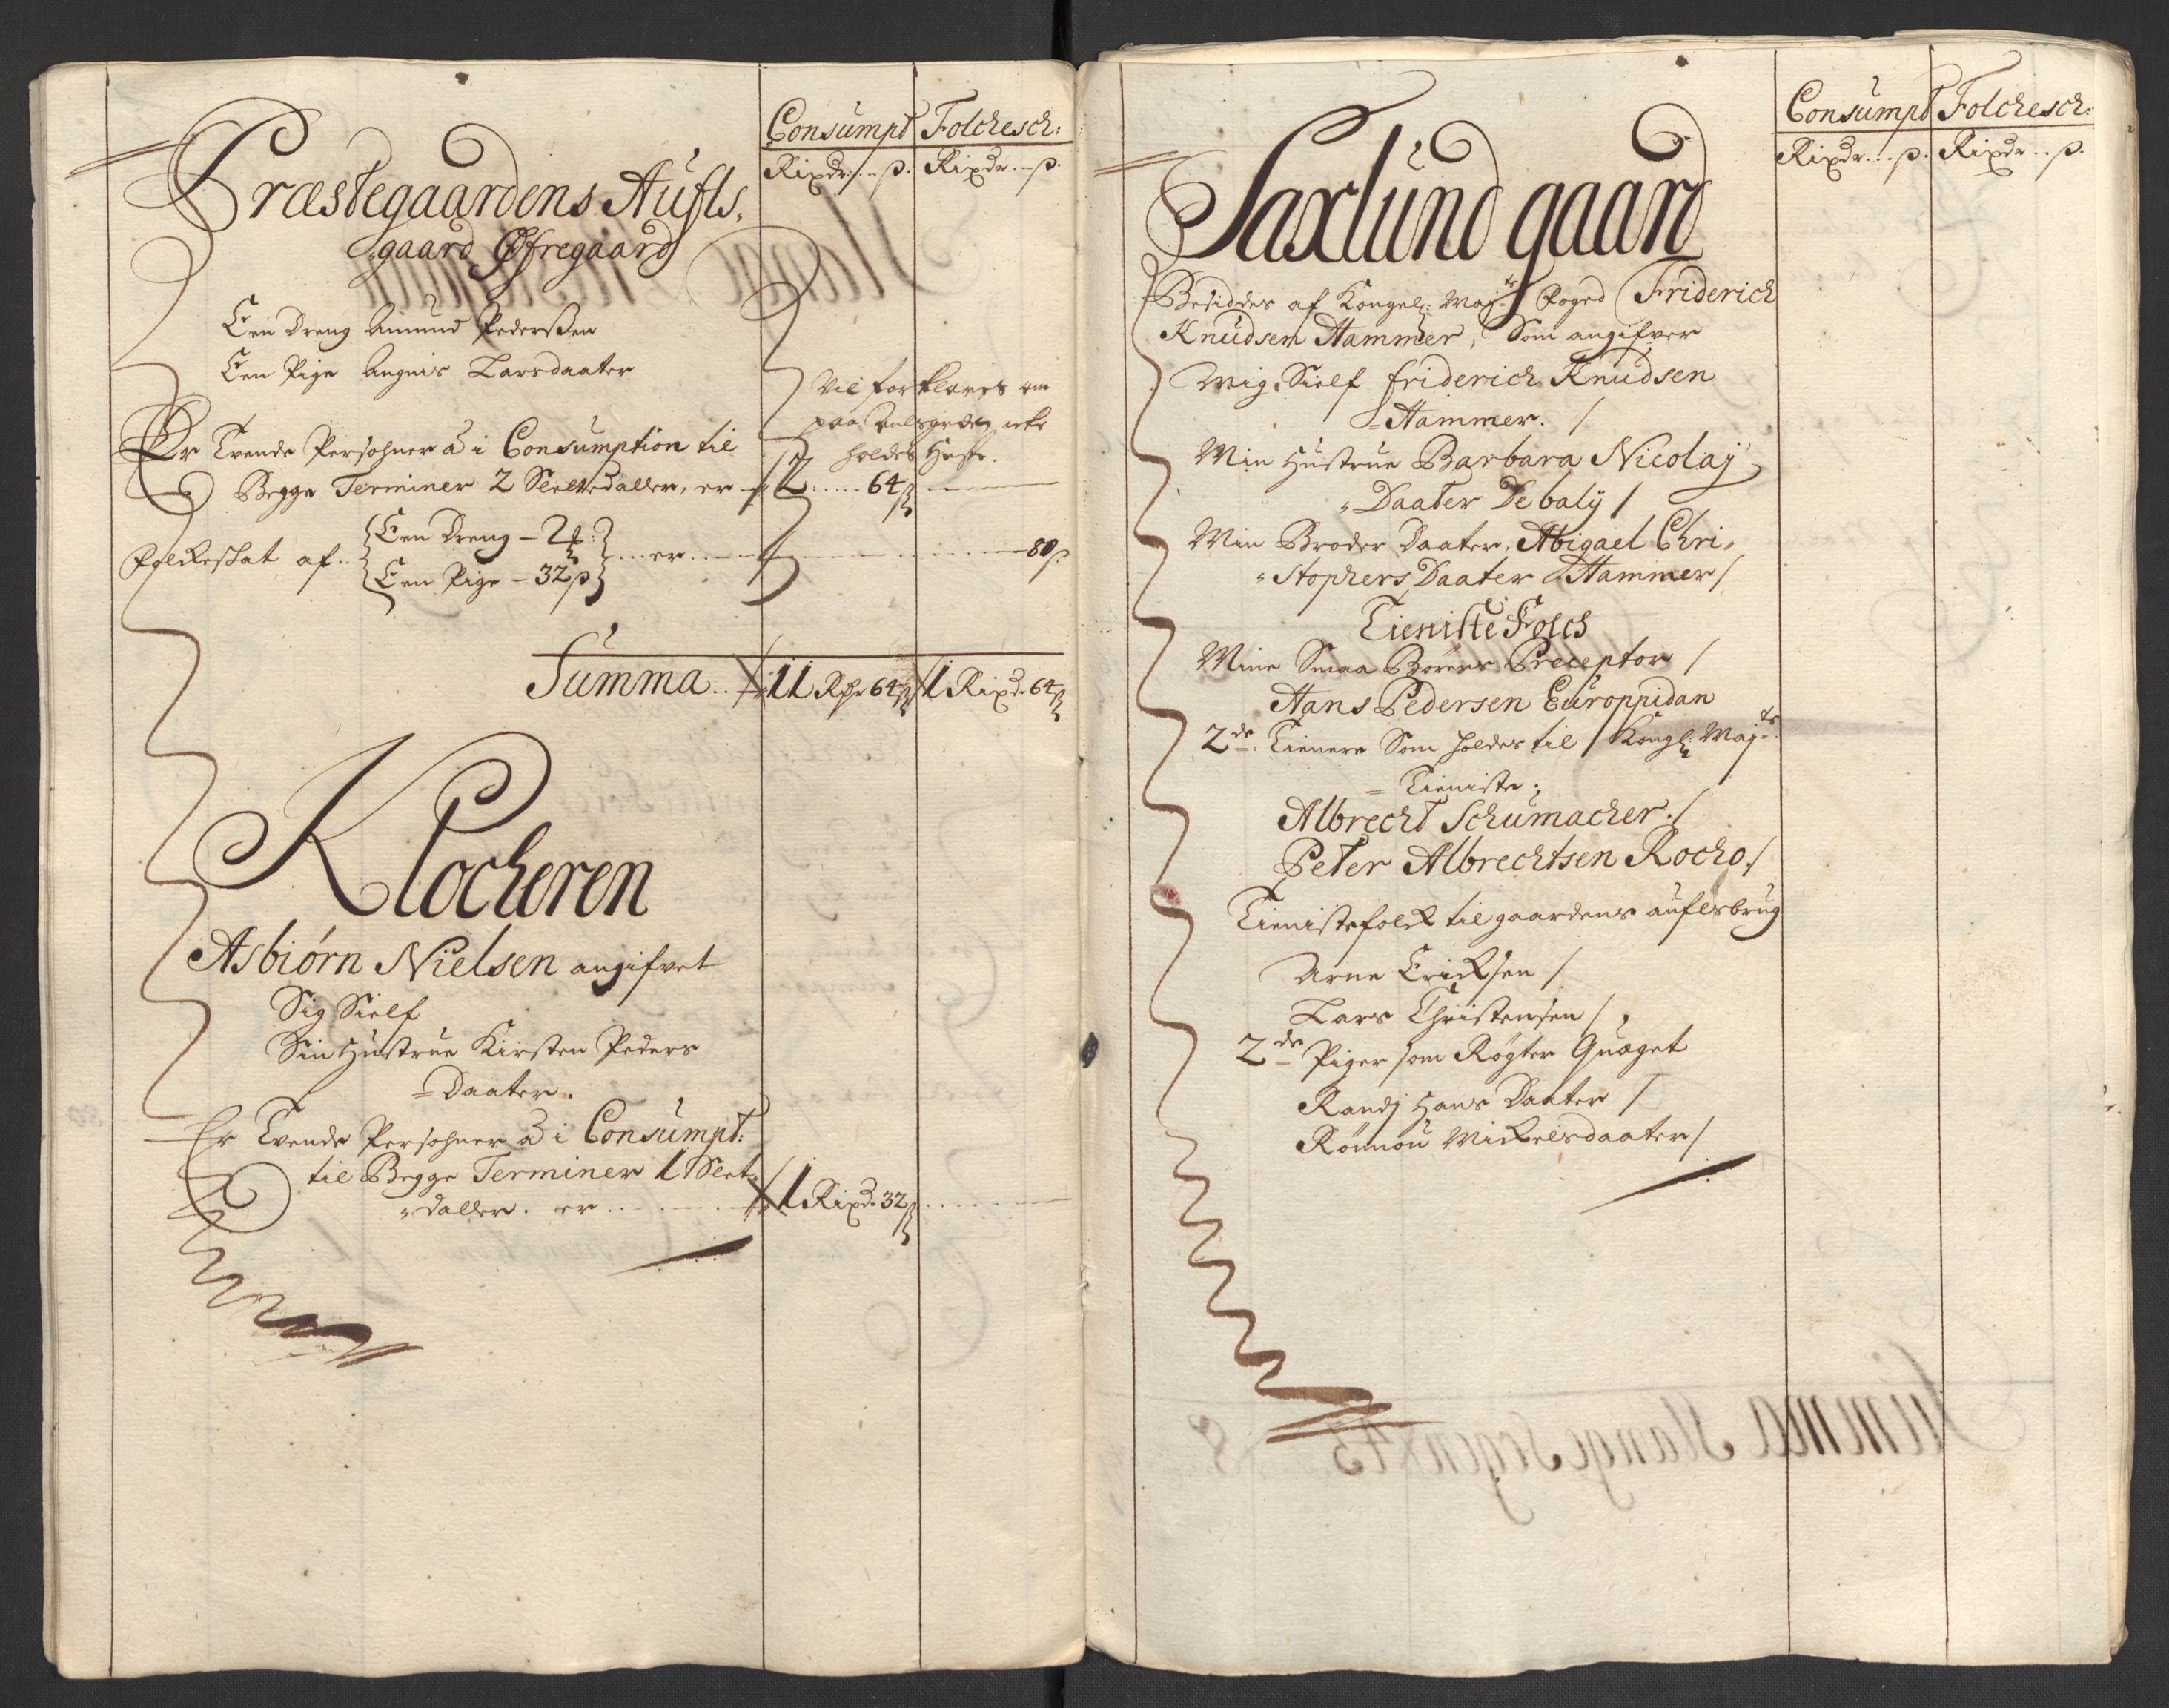 Consumpt Folchesch:
Rixdr. ß. Rixdr. ß.
Præstegaardens Aufls,
gaard Øfregaard
Een Dreng Amund Pederssen
Een Pige Angnis Larsdaater
Vil forklares om
paa Aulsgrden icke
holdes Huse.
Er Tvende Persohner à i Consumption til
Begge Terminer 2 Sletedaller, er 2 64ß
Folckeskat af
Een Dreng – 2
Een Pige – 32 ß
er 80ß
Summa 11 Rdr 64ß 1 Rixd. 64ß
Klocheren
Asbiørn Nielsen angifvet
Sig Sielf
Sin Hustrue Kirsten Peders
Daater.
Er Tvende Persohner à i Consumpt:
til Begge Terminer 1 Slet,
daller. er 1 Rixd. 32ß
Consumpt Folchesch:
Rixdr. ß. Rixdr. ß.
Saxlund gaard
Besiddes af Kongel: Maj:ts Foged Friderich
Knudsen Hammer, Som angifver
Mig Sielf friderich Knudsen
Hammer. /
Min Hustrue Barbara Nicolaj
Daater Debalÿ /
Min Broder Daater, Abigael Chri,
Stophers Daater Hammer /
Tieniste Folch
Mine Smaa Børens Preceptor /
Hans Pedersen Europpidan
2de Tienere Som holdes til Kongl: Maj:ts
Tieniste;
Albrecht Schumacher. /
Peter Albrechtsen Rocho /
Tienistefolck til gaardens auflsbrug
Arne Ericksen /
Lars Christensen /
2de Piger som Røgter Quæget
Randj Hans Daater /
Rønnou Mickelsdaater /